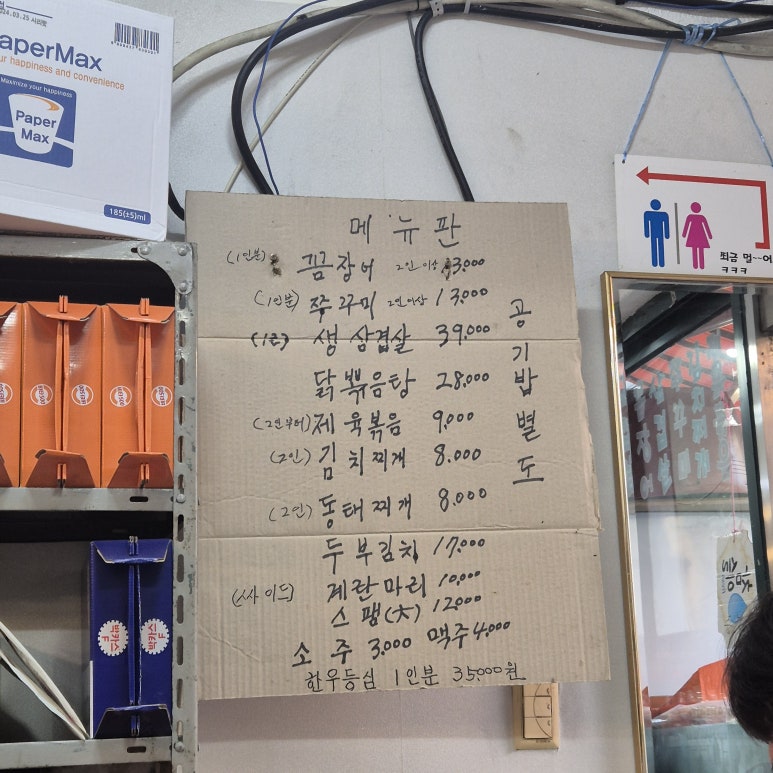 2024.03.25
PaperMax
our happiness and convenience
Maximize your happiness
Paper
Max
185(±5)ml
메뉴판
(1인분) 꼼장어 2인이상 13,000
(1인분) 쭈꾸미 2인이상 13,000
생삼겹살 39,000
닭뽂음탕 28,000
(2인부터) 제육볶음 9,000
(2인) 김치찌개 8,000
(2인) 동태찌개 8,000
두부김치 17,000
(싸이드) 계란마리 10,000
스팸(大) 12,000
소주 3,000 맥주 4,000
한우등심 1인분 35,000원
공기밥별도
쬐금 멀~~어
ㅋㅋㅋ
박카스
F